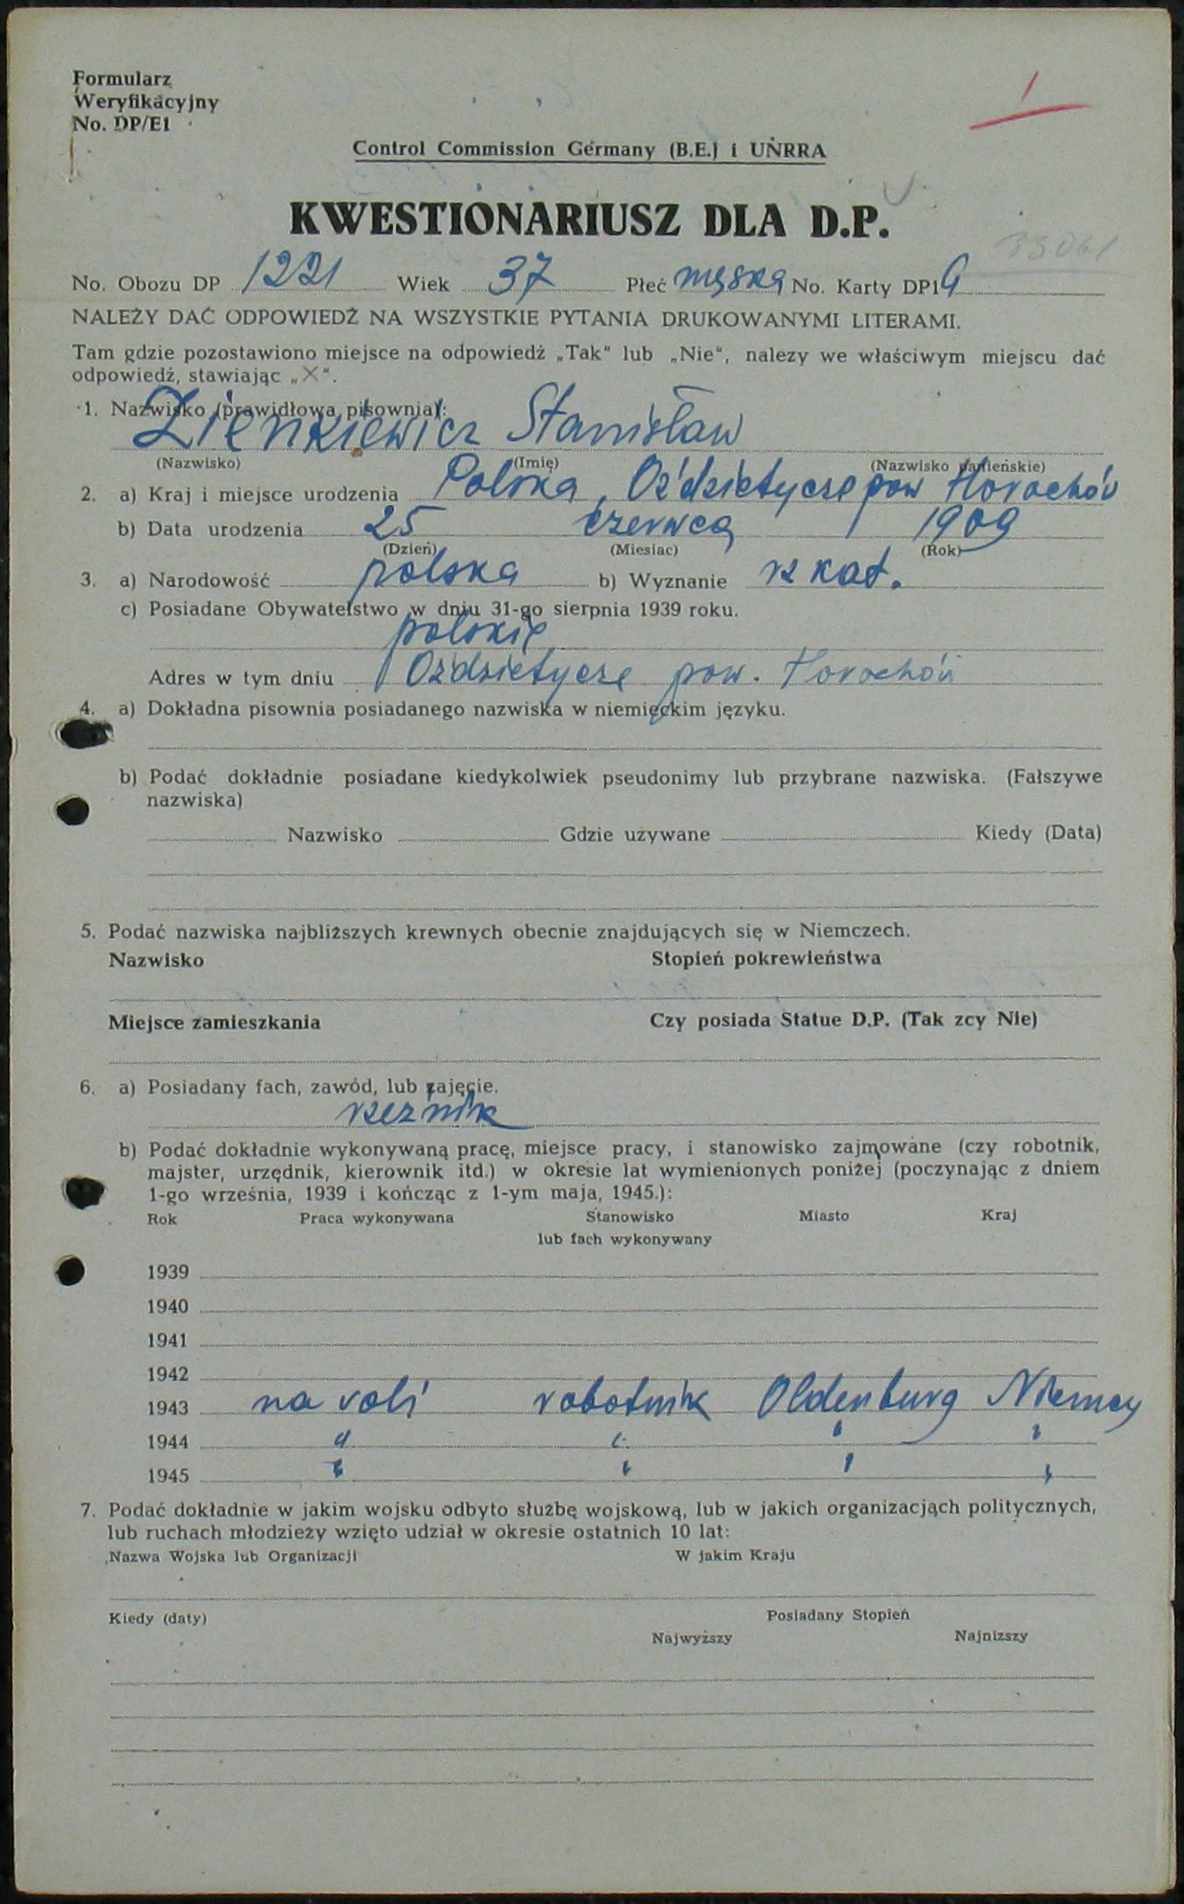 Formularz
Weryfikacyjny
No. DP/E1
Control Commission Germany (B.E.) i UNRRA
KWESTIONARIUSZ DLA D.P.
No. Obozu DP 1221 Wiek 37 Płeć męska No. Karty DP1
NALEŻY DAĆ ODPOWIEDŹ NA WSZYSTKIE PYTANIA DRUKOWANYMI LITERAMI.
Tam gdzie pozostawiono miejsce na odpowiedź „Tak" lub „Nie", nalezy we właściwym miejscu dać
odpowiedź, stawiając „X".
1. Nazwisko (prawidłowa pisownia):
Zienkiewicz Stanisław
(Nazwisko) (Imię) (Nazwisko panieńskie)
2. a) Kraj i miejsce urodzenia Polska, Oździetycze pow Horochów
b) Data urodzenia 25 czerwca 1909
(Dzień) (Miesiac) (Rok)
3. a) Narodowość polska b) Wyznanie rz kat.
c) Posiadane Obywatelstwo w dniu 31-go sierpnia 1939 roku.
polskie
Adres w tym dniu Oździetycze pow. Horochów
4. a) Dokładna pisownia posiadanego nazwiska w niemięckim języku.
b) Podać dokładnie posiadane kiedykolwiek pseudonimy lub przybrane nazwiska. (Fałszywe
nazwiska)
Nazwisko Gdzie używane Kiedy (Data)
5. Podać nazwiska najbliższych krewnych obecnie znajdujących się w Niemczech.
Nazwisko Stopień pokrewieństwa
Miejsce zamieszkania Czy posiada Statue D.P. (Tak zcy Nie)
6. a) Posiadany fach, zawód, lub zajęcie.
rzeźnik
b) Podać dokładnie wykonywaną pracę, miejsce pracy, i stanowisko zajmowane (czy robotnik,
majster, urzędnik, kierownik itd.) w okresie lat wymienionych poniżej (poczynając z dniem
1-go września, 1939 i kończąc z 1-ym maja, 1945.):
Rok Praca wykonywana Stanowisko Miasto Kraj
lub fach wykonywany
1939
1940
1941
1942
1943 na roli robotnik Oldenburg Niemcy
1944 " " " "
1945 " " " "
7. Podać dokładnie w jakim wojsku odbyto służbę wojskową, lub w jakich organizacjąch politycznych,
lub ruchach młodzieży wzięto udział w okresie ostatnich 10 lat:
Nazwa Wojska lub Organizacji W jakim Kraju
Kiedy (daty) Posiadany Stopień
Najwyższy Najnizszy